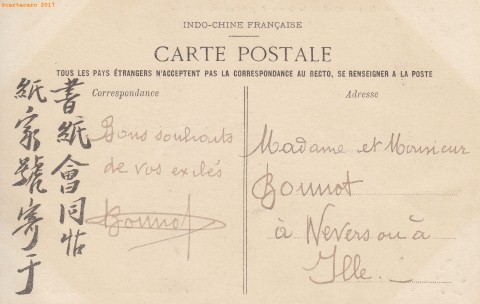 ©cartacaro 2017
INDO-CHINE FRANÇAISE
CARTE POSTALE
TOUS LES PAYS ÉTRANGERS N'ACCEPTENT PAS LA CORRESPONDANCE AU RECTO, SE RENSEIGNER A LA POSTE
Correspondance
Adresse
書紙會同帖
紙家號寄于
Bons souhaits
de vos exilés
Bonnot
Madame et Monsieur
Bonnot
à Nevers ou à
Ille.